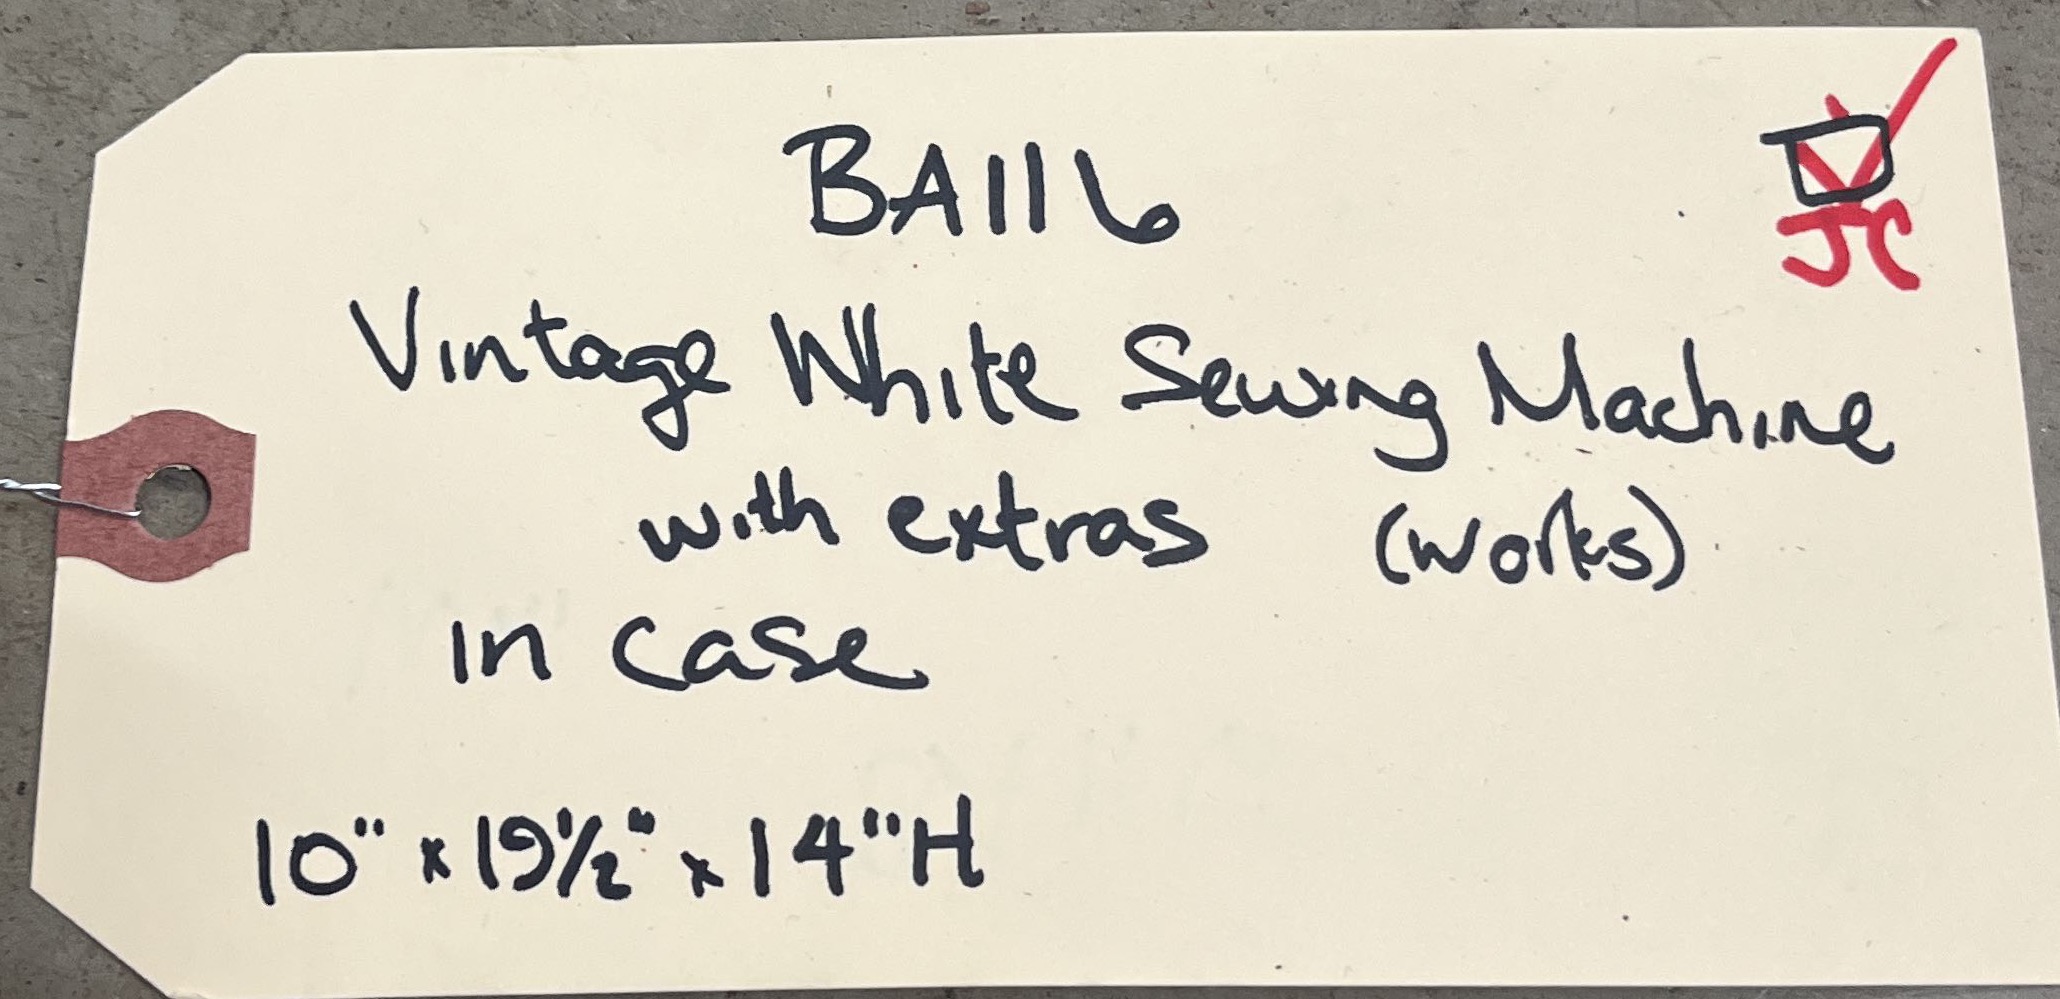 BA1116
Vintage White Sewing Machine
with extras (works)
in case
10" x 19 1/2" x 14" H
JC